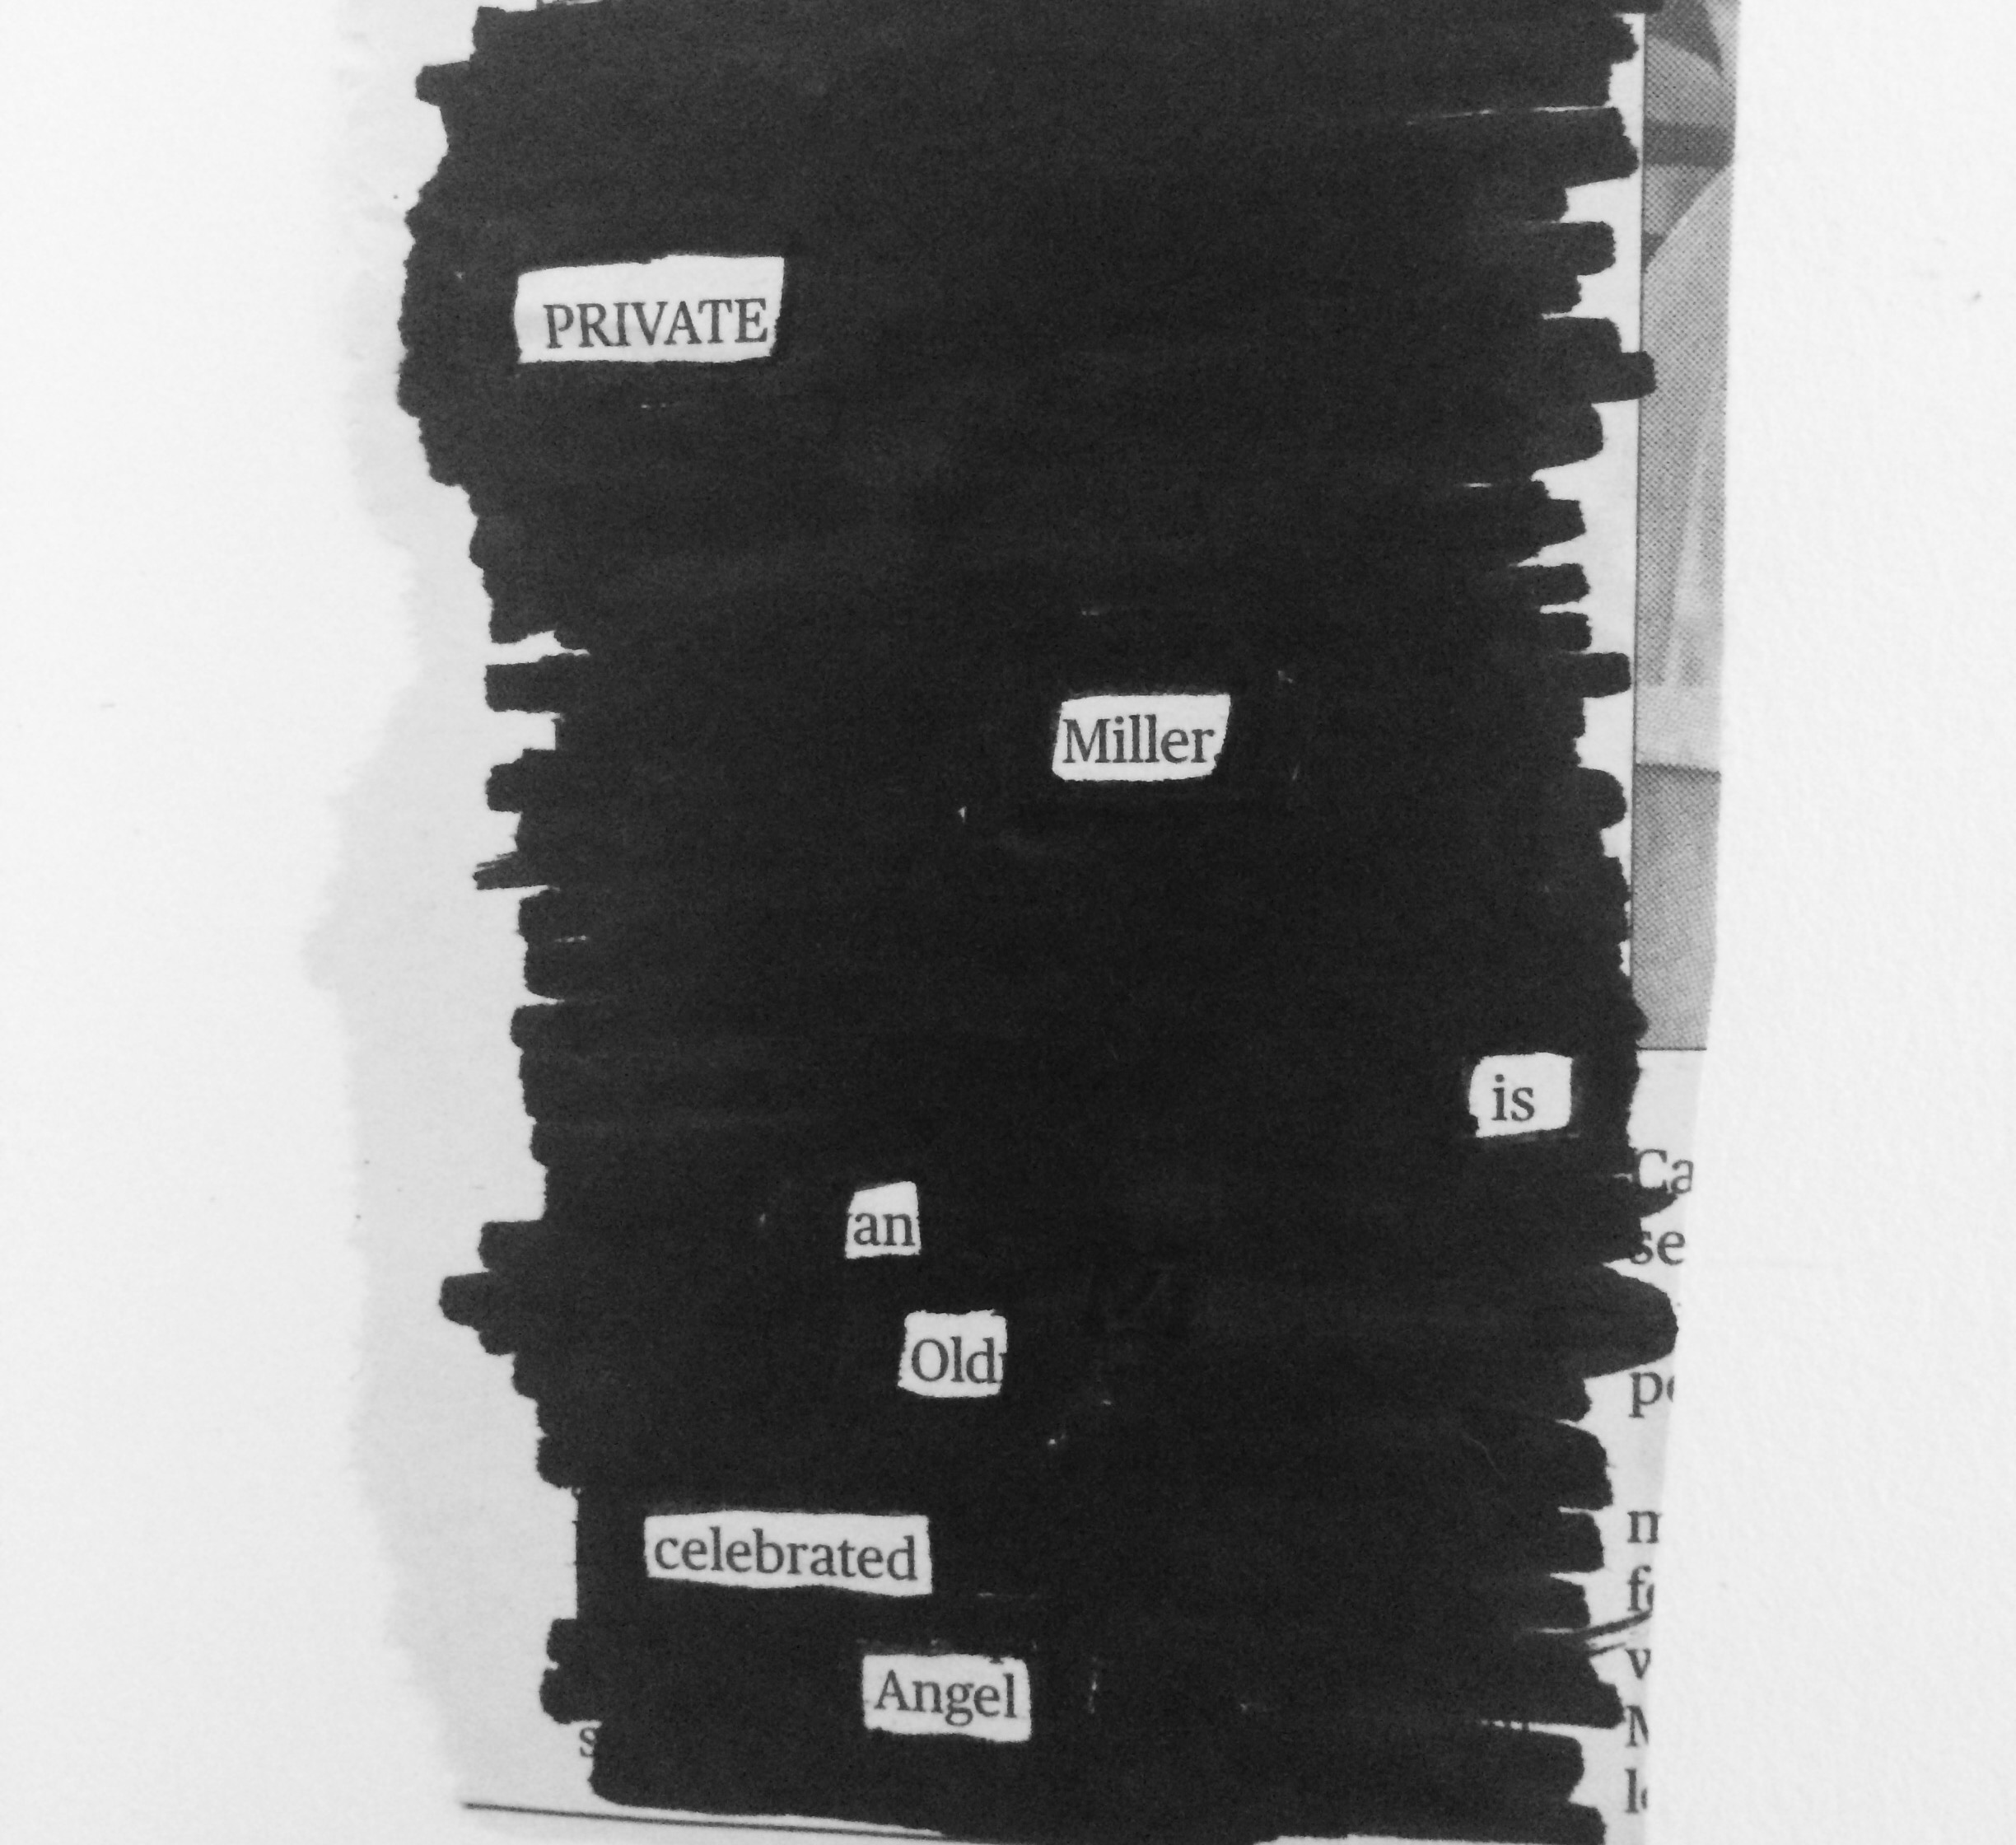 PRIVATE
Miller
is
an
Old
celebrated
Angel
Ca
se